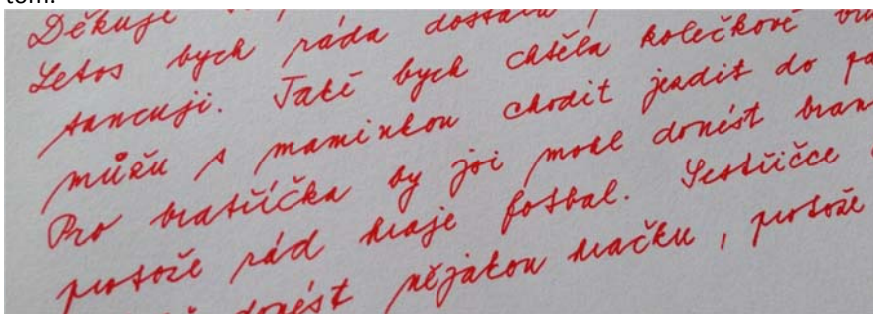 tom.
Děkuji
Letos bych ráda dostala
tancuji. Také bych chtěla kolečkové
můžu s maminkou chodit jezdit do
Pro bratříčka by jsi mohl donést
protože rád hraje fotbal. Sestřičce
donést nějakou hračku, protože